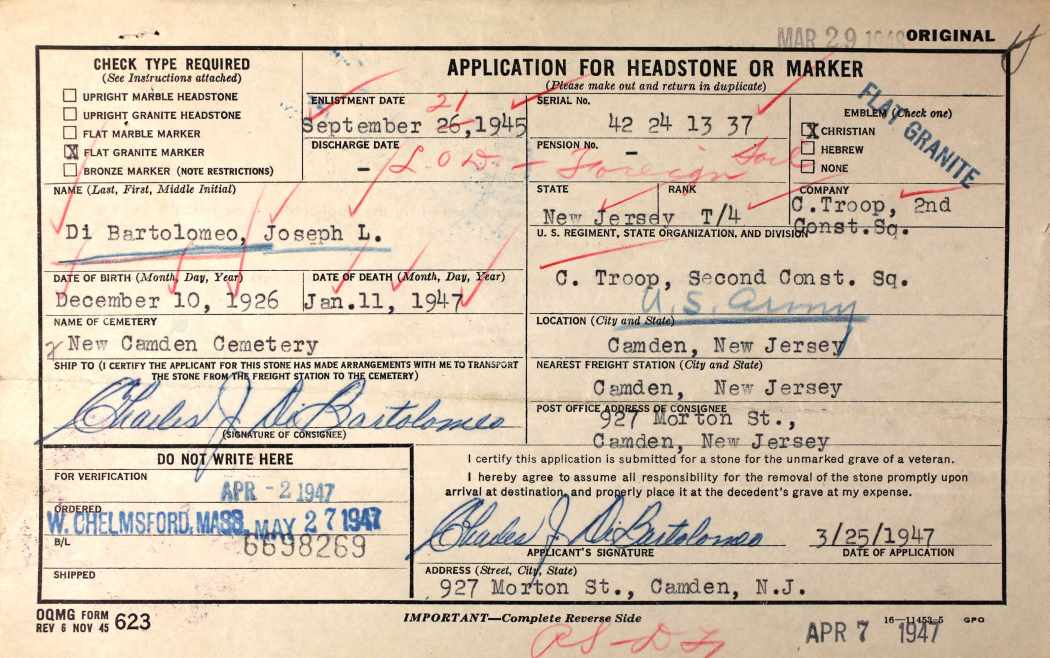 MAR 29 1948 ORIGINAL
CHECK TYPE REQUIRED
(See Instructions attached)
UPRIGHT MARBLE HEADSTONE
UPRIGHT GRANITE HEADSTONE
FLAT MARBLE MARKER
X FLAT GRANITE MARKER
BRONZE MARKER (NOTE RESTRICTIONS)
APPLICATION FOR HEADSTONE OR MARKER
(Please make out and return in duplicate)
ENLISTMENT DATE
21
September 26, 1945
SERIAL No.
42 24 13 37
EMBLEM (Check one)
X CHRISTIAN
HEBREW
NONE
FLAT GRANITE
DISCHARGE DATE
-
L.O.D. - Foreign Soil
PENSION No.
-
NAME (Last, First, Middle Initial)
Di Bartolomeo, Joseph L.
STATE
New Jersey
RANK
T/4
COMPANY
C.Troop, 2nd
Const.Sq.
U. S. REGIMENT, STATE ORGANIZATION, AND DIVISION
C. Troop, Second Const. Sq.
U.S. Army
DATE OF BIRTH (Month, Day, Year)
December 10, 1926
DATE OF DEATH (Month, Day, Year)
Jan.11, 1947
NAME OF CEMETERY
New Camden Cemetery
LOCATION (City and State)
Camden, New Jersey
SHIP TO (I CERTIFY THE APPLICANT FOR THIS STONE HAS MADE ARRANGEMENTS WITH ME TO TRANSPORT
THE STONE FROM THE FREIGHT STATION TO THE CEMETERY)
Charles J. Di Bartolomeo
(SIGNATURE OF CONSIGNEE)
NEAREST FREIGHT STATION (City and State)
Camden, New Jersey
POST OFFICE ADDRESS OF CONSIGNEE
927 Morton St.,
Camden, New Jersey
DO NOT WRITE HERE
FOR VERIFICATION
APR -2 1947
ORDERED
W. CHELMSFORD, MASS. MAY 27 1947
B/L
6698269
SHIPPED
I certify this application is submitted for a stone for the unmarked grave of a veteran.
I hereby agree to assume all responsibility for the removal of the stone promptly upon
arrival at destination, and properly place it at the decedent's grave at my expense.
Charles J. Di Bartolomeo 3/25/1947
APPLICANT'S SIGNATURE DATE OF APPLICATION
ADDRESS (Street, City, State)
927 Morton St., Camden, N.J.
OQMG FORM 623
REV 6 NOV 45
IMPORTANT—Complete Reverse Side
16—11453-5 GPO
APR 7 1947